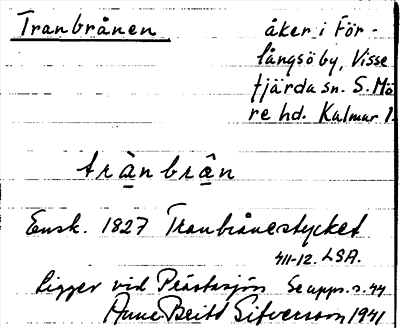 Tranbrånen
åker i För-
långsö by, Visse
fjärda sn. S. Mö
re hd. Kalmar l.
trànbrån
Ensk. 1827 Tranbrånestycket
411-12. LSA.
Ligger vid Prästasjön Se upps. s. 44
Anne Britt Sifversson 1941